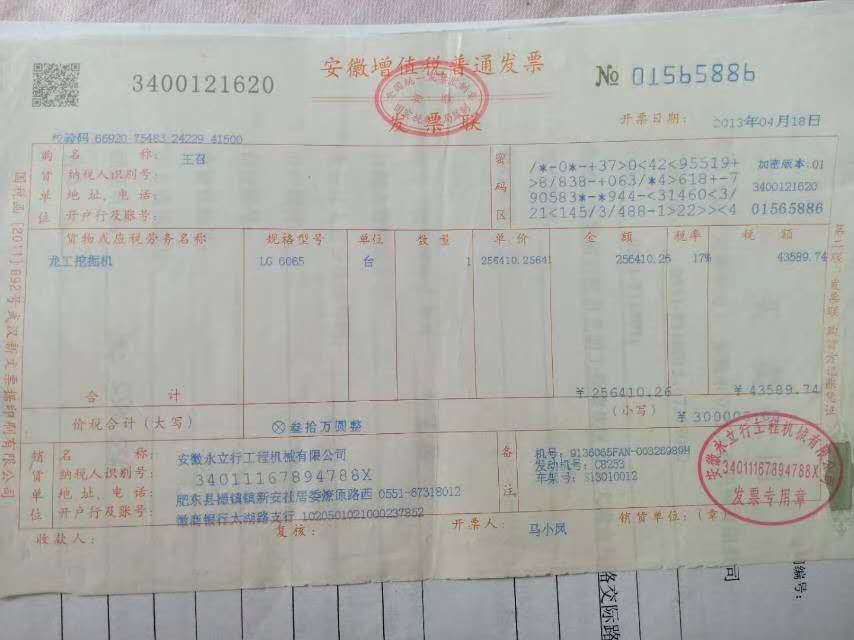 3400121620
安徽增值税普通发票
发票联
№ 01565886
开票日期： 2013年04月18日
校验码 66920 75483 24229 41500
购货单位
名 称： 王召
纳税人识别号：
地址、电话：
开户行及账号：
密码区
/*-0*-+37>0<42<95519+
>8/838-+063/*4>618+-7
90583*-*944-<31460<3/
21<145/3/488-1>22>><4
加密版本:01
3400121620
01565886
货物或应税劳务名称 规格型号 单位 数量 单价 金额 税率 税额
龙工挖掘机 LG 6065 台 1 256410.25641 256410.26 17% 43589.74
合 计 ￥256410.26 ￥43589.74
价税合计（大写） ⊗叁拾万圆整 （小写） ￥30000
销货单位
名 称： 安徽永立行工程机械有限公司
纳税人识别号： 34011167894788X
地址、电话： 肥东县撮镇镇新安社居委燎原路西 0551-67318012
开户行及账号： 徽商银行太湖路支行 1020501021000237852
备注
机号：9136065FAN-00326989H
发动机号：C8253
车架号：S13010012
安徽永立行工程机械有限公司
34011167894788X
发票专用章
收款人： 复核： 开票人： 马小凤 销货单位：（章）
第二联：发票联 购货方记账凭证
络交际路
司
编号：